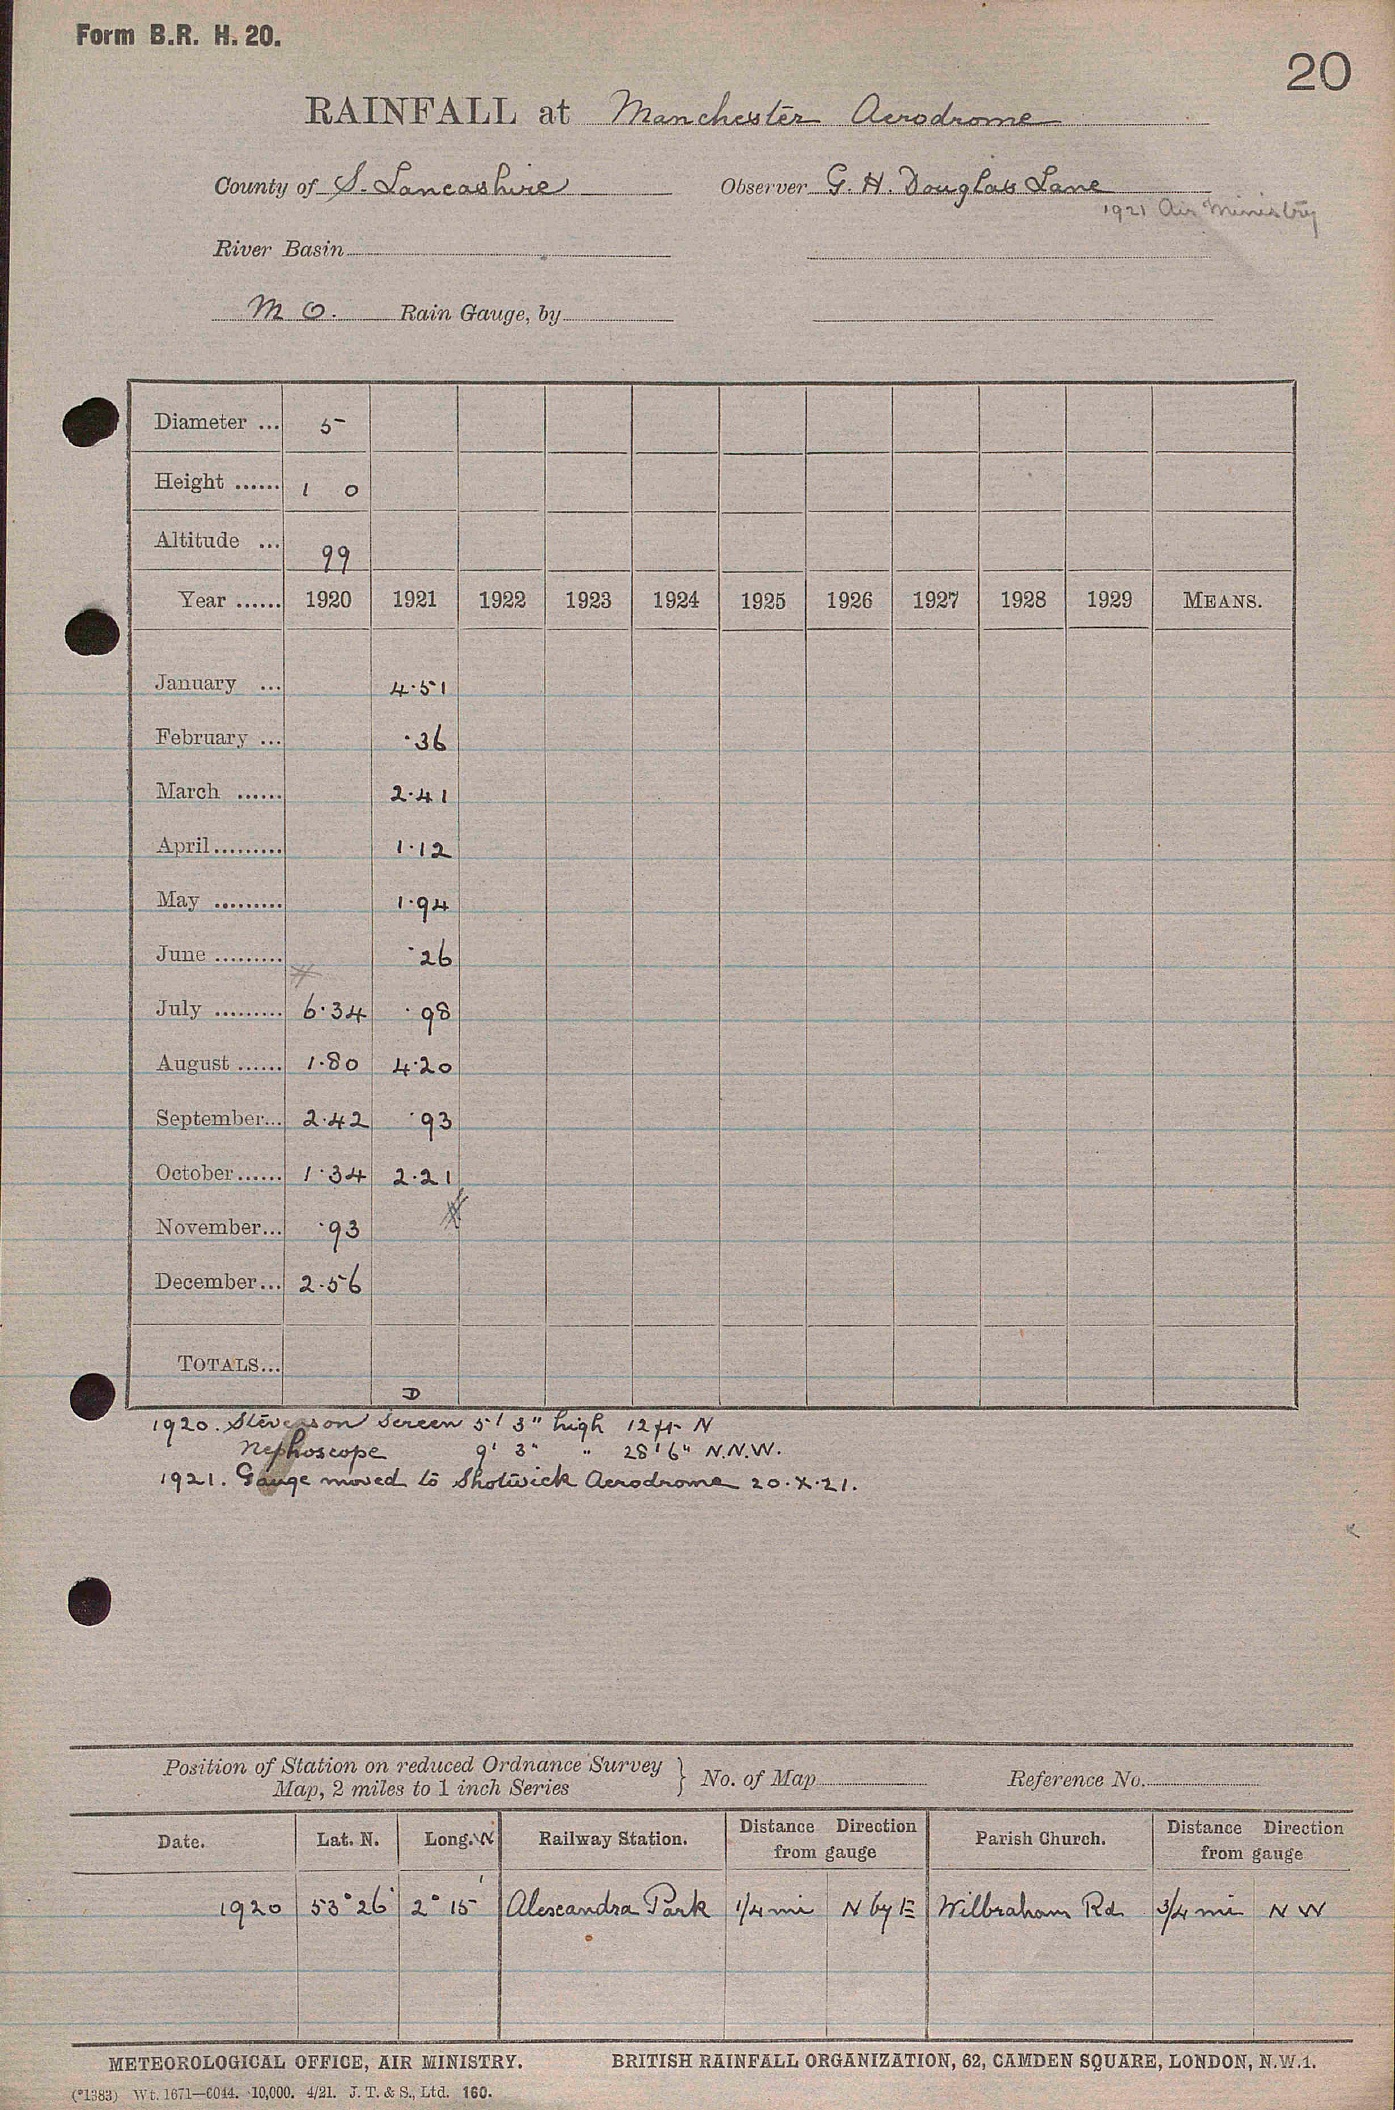 Form B.R. H. 20.
20
RAINFALL at Manchester Aerodrome
County of S. Lancashire Observer G. H. Douglas Lane
1921 Air Ministry
River Basin
M O. Rain Gauge, by
Diameter ... 5
Height ...... 1 0
Altitude ... 99
Year ...... 1920 1921 1922 1923 1924 1925 1926 1927 1928 1929 MEANS.
January ... 4.51
February ... .36
March ...... 2.41
April ......... 1.12
May ......... 1.94
June ......... .26
July ......... 6.34 .98
August ...... 1.80 4.20
September... 2.42 .93
October...... 1.34 2.21
November... .93
December... 2.56
TOTALS...
D
1920. Stevenson Screen 5' 3" high 12 ft N
Nephoscope 9' 3" " 28' 6" N.N.W.
1921. Gauge moved to Shotwick Aerodrome 20.X.21.
Position of Station on reduced Ordnance Survey
Map, 2 miles to 1 inch Series } No. of Map Reference No.
Date. Lat. N. Long. W Railway Station. Distance Direction from gauge Parish Church. Distance Direction from gauge
1920 53° 26' 2° 15' Alexandra Park 1/4 mi N by E Wilbraham Rd 3/4 mi N W
METEOROLOGICAL OFFICE, AIR MINISTRY. BRITISH RAINFALL ORGANIZATION, 62, CAMDEN SQUARE, LONDON, N.W.1.
(*1383) Wt. 1671—6044. 10,000. 4/21. J. T. & S., Ltd. 160.